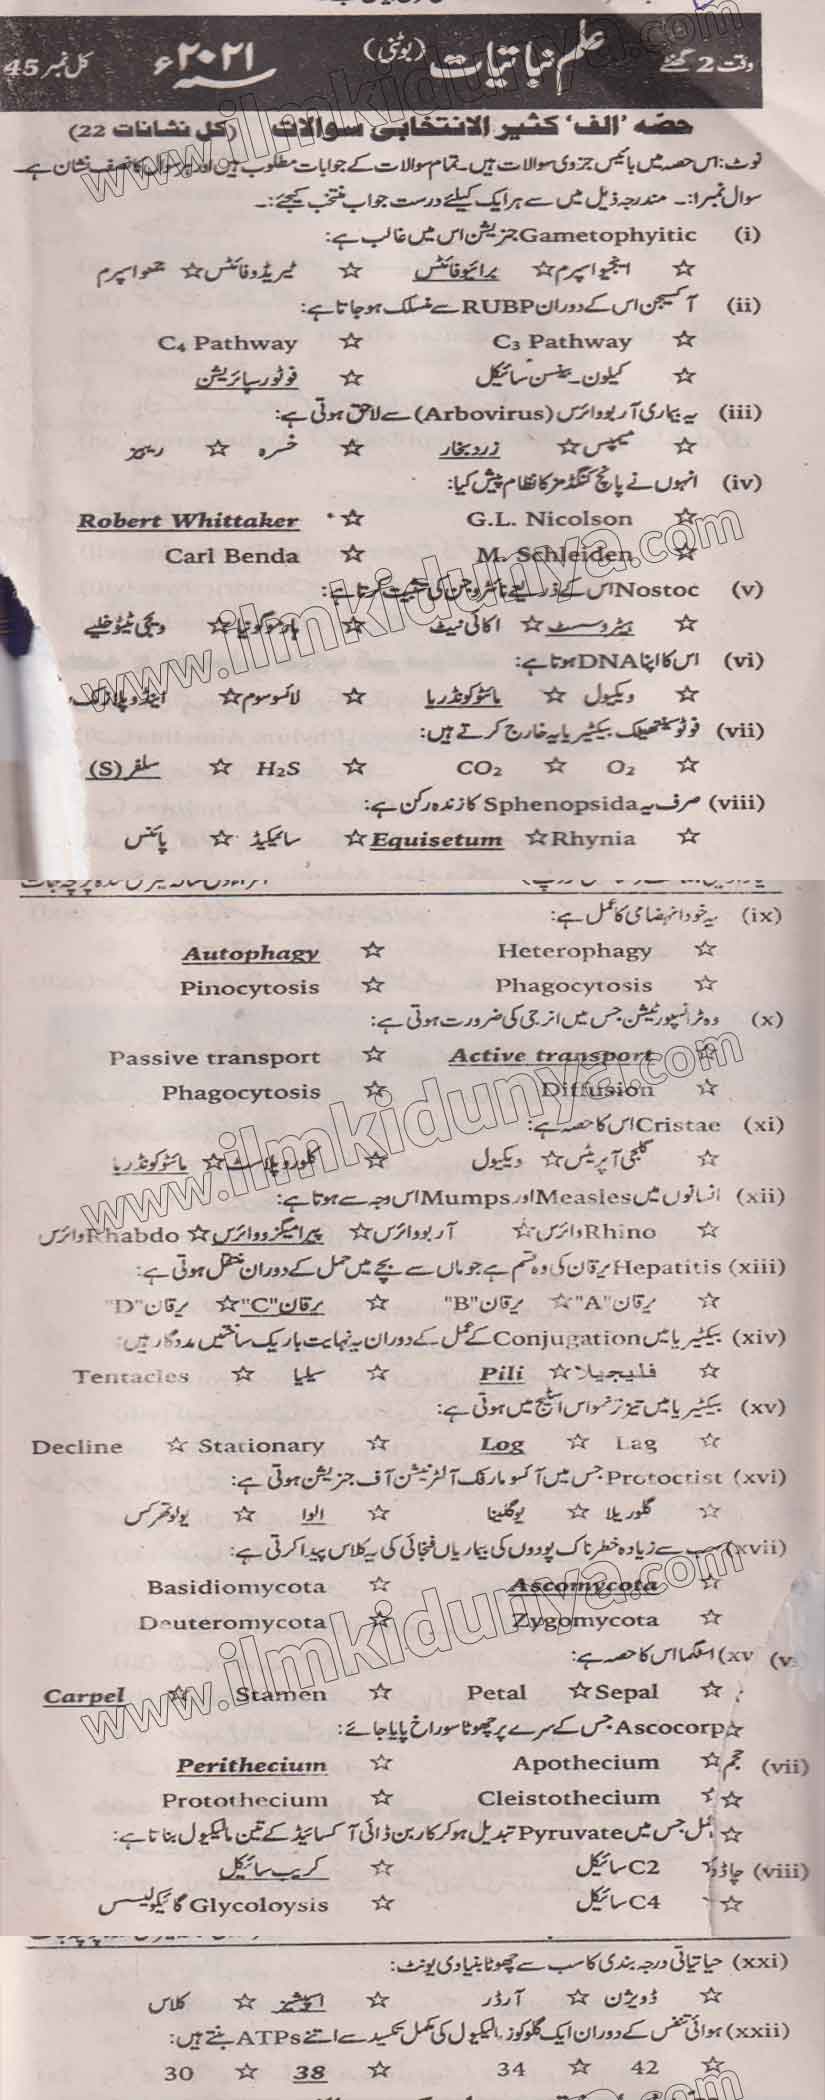 وقت 2 گھنٹے علم نباتیات (بوٹنی) سنہ ۲۰۲۱ء کل نمبر 45
حصّہ ’الف‘ کثیر الانتخابی سوالات (کل نشانات 22)
نوٹ: اس حصہ میں بائیس جزوی سوالات ہیں۔ تمام سوالات کے جوابات مطلوب ہیں اور ہر سوال کا نصف نشان ہے۔
سوال نمبر ۱:۔ مندرجہ ذیل میں سے ہر ایک کیلئے درست جواب منتخب کیجئے:۔
(i) Gametophyitic جنریشن اس میں غالب ہے:
☆ اینجیو اسپرم ☆ برائیوفائٹس ☆ ٹیریڈوفائٹس ☆ جمنو اسپرم
(ii) آکسیجن اس کے دوران RUBP سے منسلک ہوجاتا ہے:
☆ C₃ Pathway ☆ C₄ Pathway
☆ کیلون۔بینسن سائیکل ☆ فوٹوریسپائریشن
(iii) یہ بیماری آربو وائرس (Arbovirus) سے لاحق ہوتی ہے:
☆ میمپس ☆ زرد بخار ☆ خسرہ ☆ ریبیز
(iv) انہوں نے پانچ کنگڈمز کا نظام پیش کیا:
☆ G.L. Nicolson ☆ Robert Whittaker
☆ M. Schleiden ☆ Carl Benda
(v) Nostoc اس کے ذریعے نائٹروجن کی تثبیت کرتا ہے:
☆ ہیٹروسسٹ ☆ اکائی نیٹ ☆ ہارموگونیا ☆ ویجی ٹیٹو خلیے
(vi) اس کا اپنا DNA ہوتا ہے:
☆ ویکیول ☆ مائٹوکونڈریا ☆ لائسوسوم ☆ اینڈوپلازمک
(vii) فوٹوسنتھیٹک بیکٹیریا یہ خارج کرتے ہیں:
☆ O₂ ☆ CO₂ ☆ H₂S ☆ سلفر (S)
(viii) صرف یہ Sphenopsida کا زندہ رکن ہے:
☆ Rhynia ☆ Equisetum ☆ سائیکیڈ ☆ پائنس
(ix) یہ خود انہضامی کا عمل ہے:
☆ Heterophagy ☆ Autophagy
☆ Phagocytosis ☆ Pinocytosis
(x) وہ ٹرانسپورٹیشن جس میں انرجی کی ضرورت ہوتی ہے:
☆ Active transport ☆ Passive transport
☆ Diffusion ☆ Phagocytosis
(xi) Cristae اس کا حصہ ہے:
☆ گلجی آپریٹس ☆ ویکیول ☆ کلوروپلاسٹ ☆ مائٹوکونڈریا
(xii) انسانوں میں Measles اور Mumps اس وجہ سے ہوتا ہے:
☆ Rhino وائرس ☆ آربو وائرس ☆ پیرامیگزووائرس ☆ Rhabdo وائرس
(xiii) Hepatitis یرقان کی وہ قسم ہے جو ماں سے بچے میں حمل کے دوران منتقل ہوتی ہے:
☆ یرقان "A" ☆ یرقان "B" ☆ یرقان "C" ☆ یرقان "D"
(xiv) بیکٹیریا میں Conjugation کے عمل کے دوران یہ نہایت باریک ساختیں مددگار ہیں:
☆ فلیجیلا ☆ Pili ☆ سیلیا ☆ Tentacles
(xv) بیکٹیریا میں تیز تر نمو اس اسٹیج میں ہوتی ہے:
☆ Lag ☆ Log ☆ Stationary ☆ Decline
(xvi) Protoctist جس میں آئسومارفک آلٹرنیشن آف جنریشن ہوتی ہے:
☆ کلوریلا ☆ یوگلینا ☆ الوا ☆ یولوتھرکس
(xvii) سب سے زیادہ خطرناک پودوں کی بیماریاں فنجائی کی یہ کلاس پیدا کرتی ہے:
☆ Ascomycota ☆ Basidiomycota
☆ Zygomycota ☆ Deuteromycota
(xv اسٹگما اس کا حصہ ہے:
☆ Sepal ☆ Petal ☆ Stamen ☆ Carpel
☆ Ascocorp جس کے سرے پر چھوٹا سوراخ پایا جائے:
(vii) حجم ☆ Apothecium ☆ Perithecium
☆ Cleistothecium ☆ Protothecium
☆ عمل جس میں Pyruvate تبدیل ہوکر کاربن ڈائی آکسائیڈ کے تین مالیکیول بناتا ہے:
(viii) C2 سائیکل ☆ کریب سائیکل
☆ C4 سائیکل ☆ Glycoloysis گلائیکولیسس
(xxi) حیاتیاتی درجہ بندی کا سب سے چھوٹا بنیادی یونٹ:
☆ ڈویژن ☆ آرڈر ☆ اسپیشیز ☆ کلاس
(xxii) ہوائی تنفس کے دوران ایک گلوکوز مالیکیول کی مکمل تکسید سے اتنے ATPs بنتے ہیں:
☆ 42 ☆ 34 ☆ 38 ☆ 30
www.ilmkidunya.com